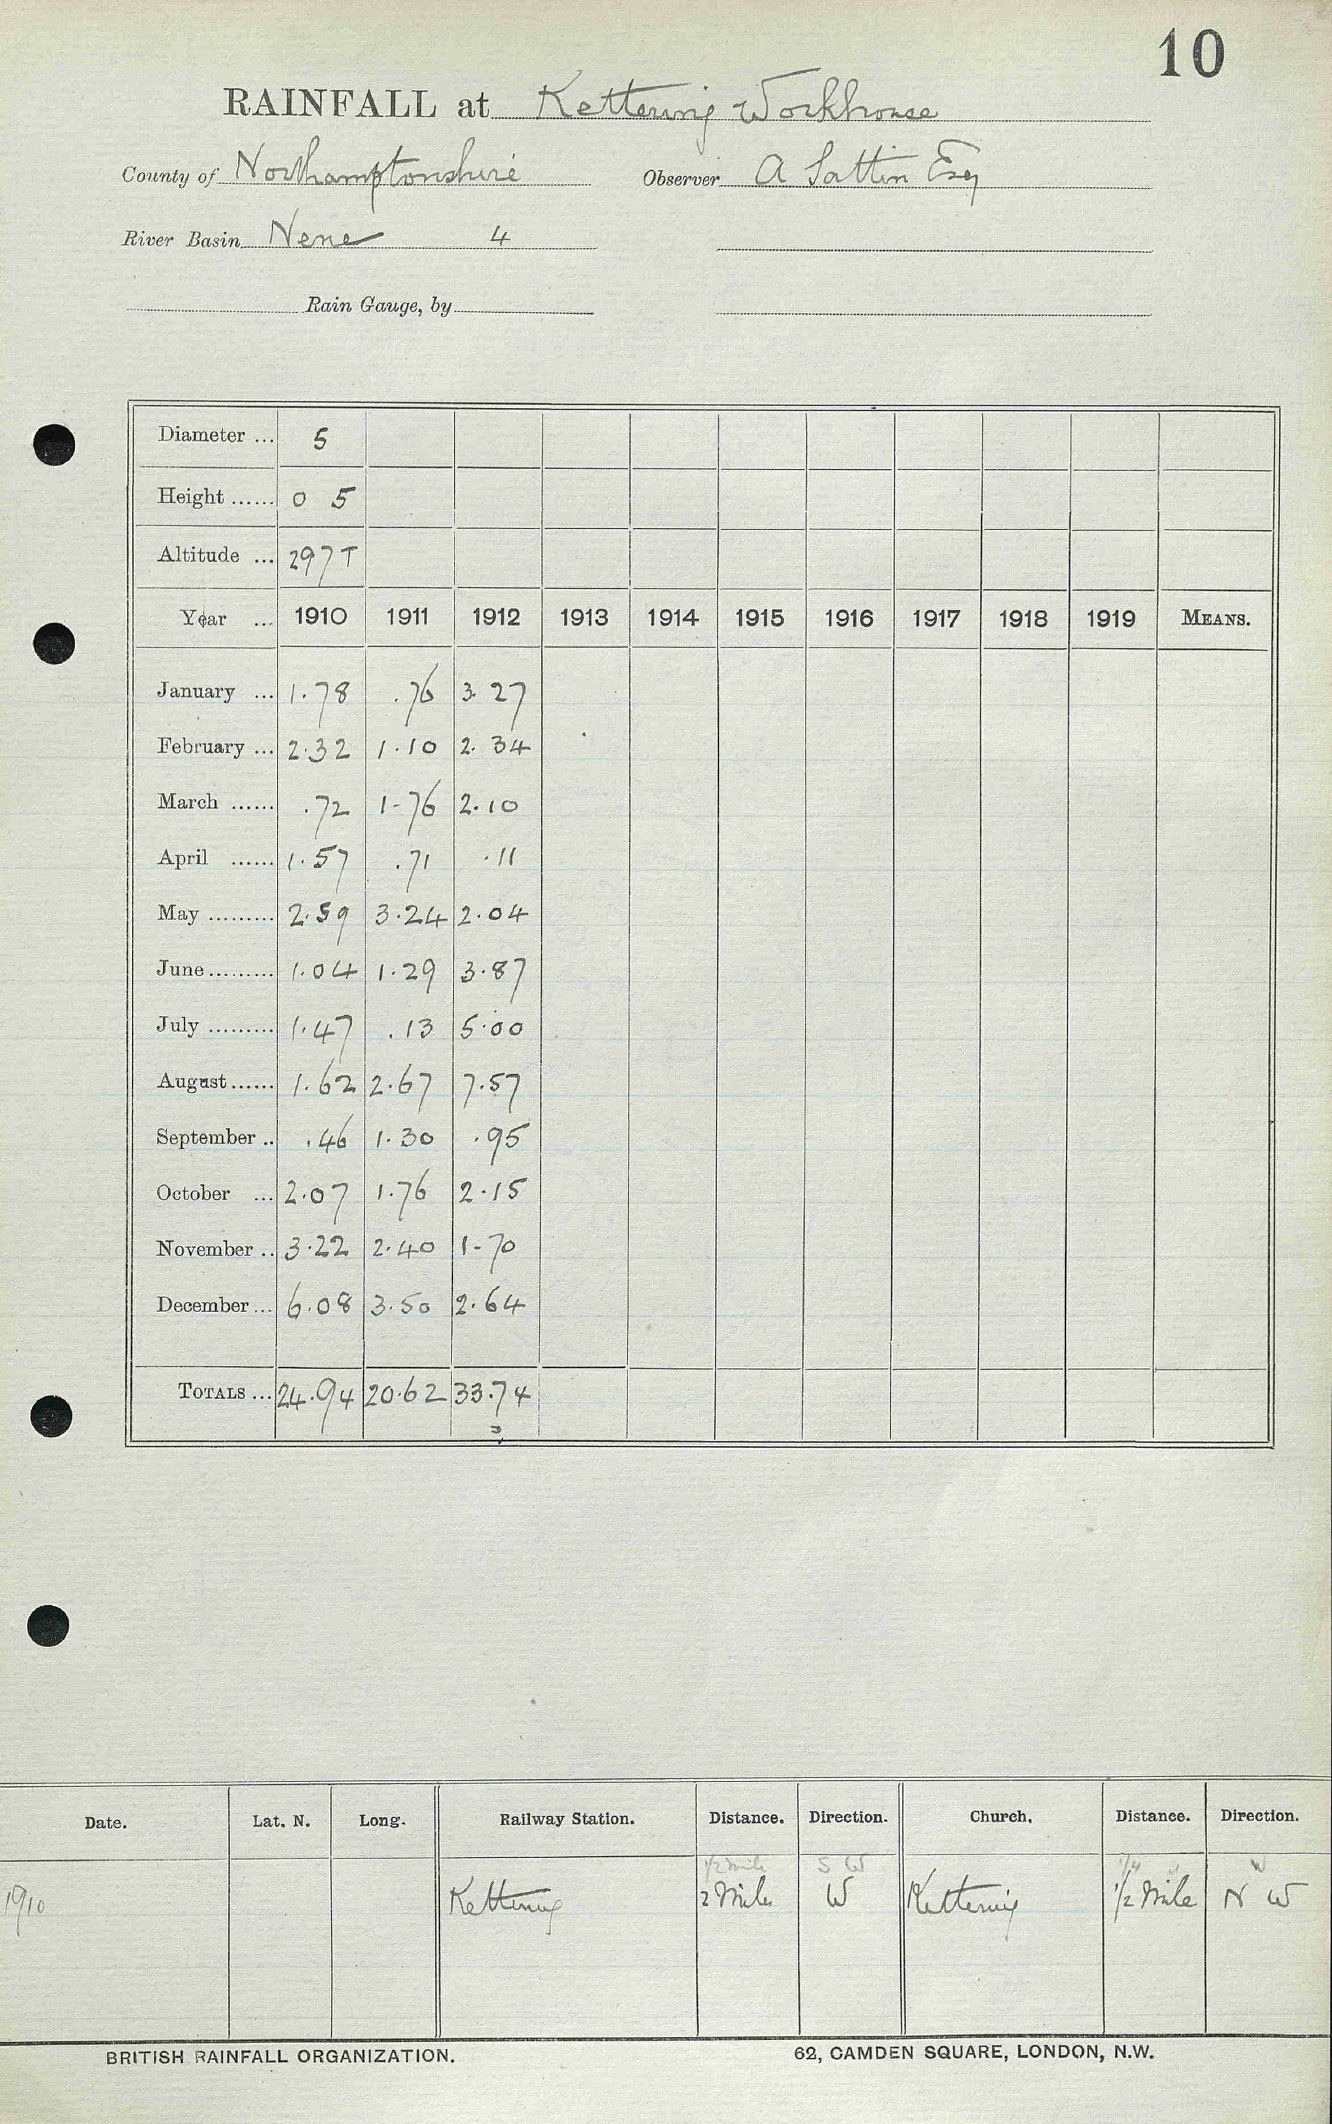 10
RAINFALL at Kettering Workhouse
County of Northamptonshire Observer A Sattin Esq
River Basin Nene 4
Rain Gauge, by
Diameter ... 5
Height ...... 0 5
Altitude ... 297 T
Year ... 1910 1911 1912 1913 1914 1915 1916 1917 1918 1919 MEANS.
January ... 1.78 .76 3.27
February ... 2.32 1.10 2.34
March ...... .72 1.76 2.10
April ...... 1.57 .71 .11
May ......... 2.59 3.24 2.04
June ......... 1.04 1.29 3.87
July ......... 1.47 .13 5.00
August ...... 1.62 2.67 7.57
September .. .46 1.30 .95
October ... 2.07 1.76 2.15
November .. 3.22 2.40 1.70
December ... 6.08 3.50 2.64
TOTALS ... 24.94 20.62 33.74
Date. Lat. N. Long. Railway Station. Distance. Direction. Church. Distance. Direction.
1/2 mile S W 1/4 W
1910 Kettering 2 Mile W Kettering 1/2 Mile N W
BRITISH RAINFALL ORGANIZATION. 62, CAMDEN SQUARE, LONDON, N.W.